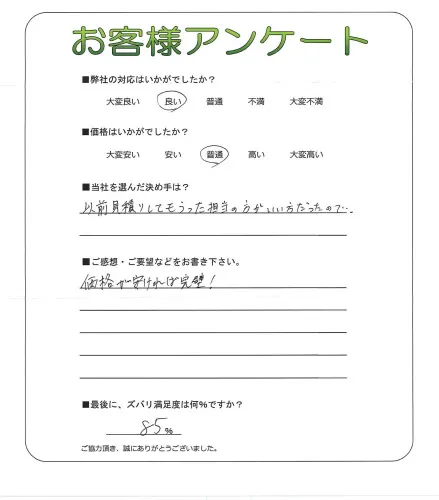 お客様アンケート
■弊社の対応はいかがでしたか？
大変良い 良い 普通 不満 大変不満
■価格はいかがでしたか？
大変安い 安い 普通 高い 大変高い
■当社を選んだ決め手は？
以前見積りしてもらった担当の方がいい方だったので…
■ご感想・ご要望などをお書き下さい。
価格が安ければ完璧！
■最後に、ズバリ満足度は何％ですか？
85％
ご協力頂き、誠にありがとうございました。